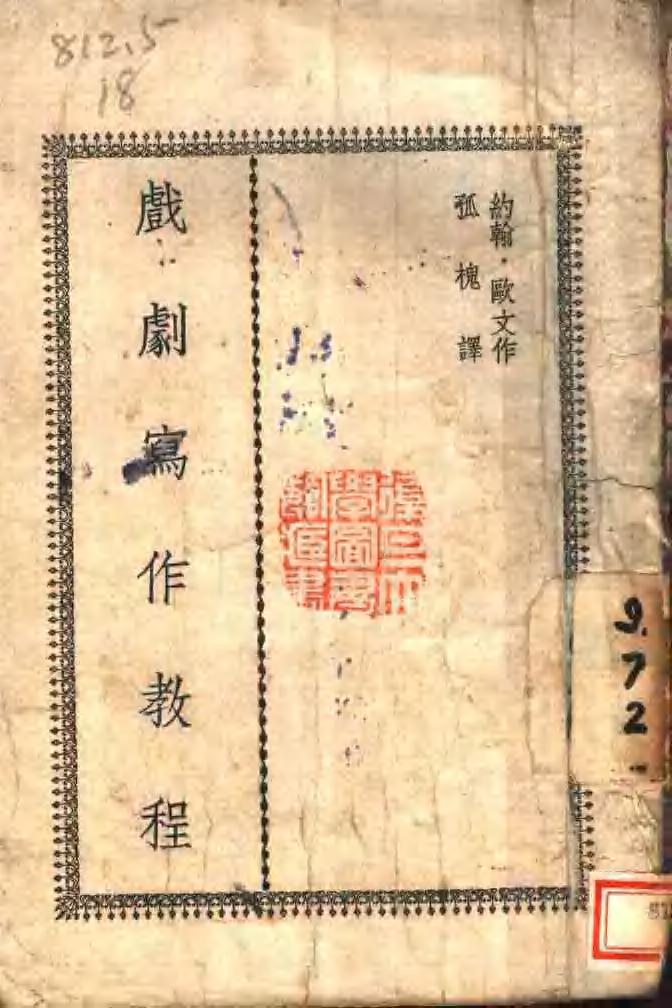 812.5
18
約翰·歐文作
孤槐譯
戲劇寫作教程
9.
7
2